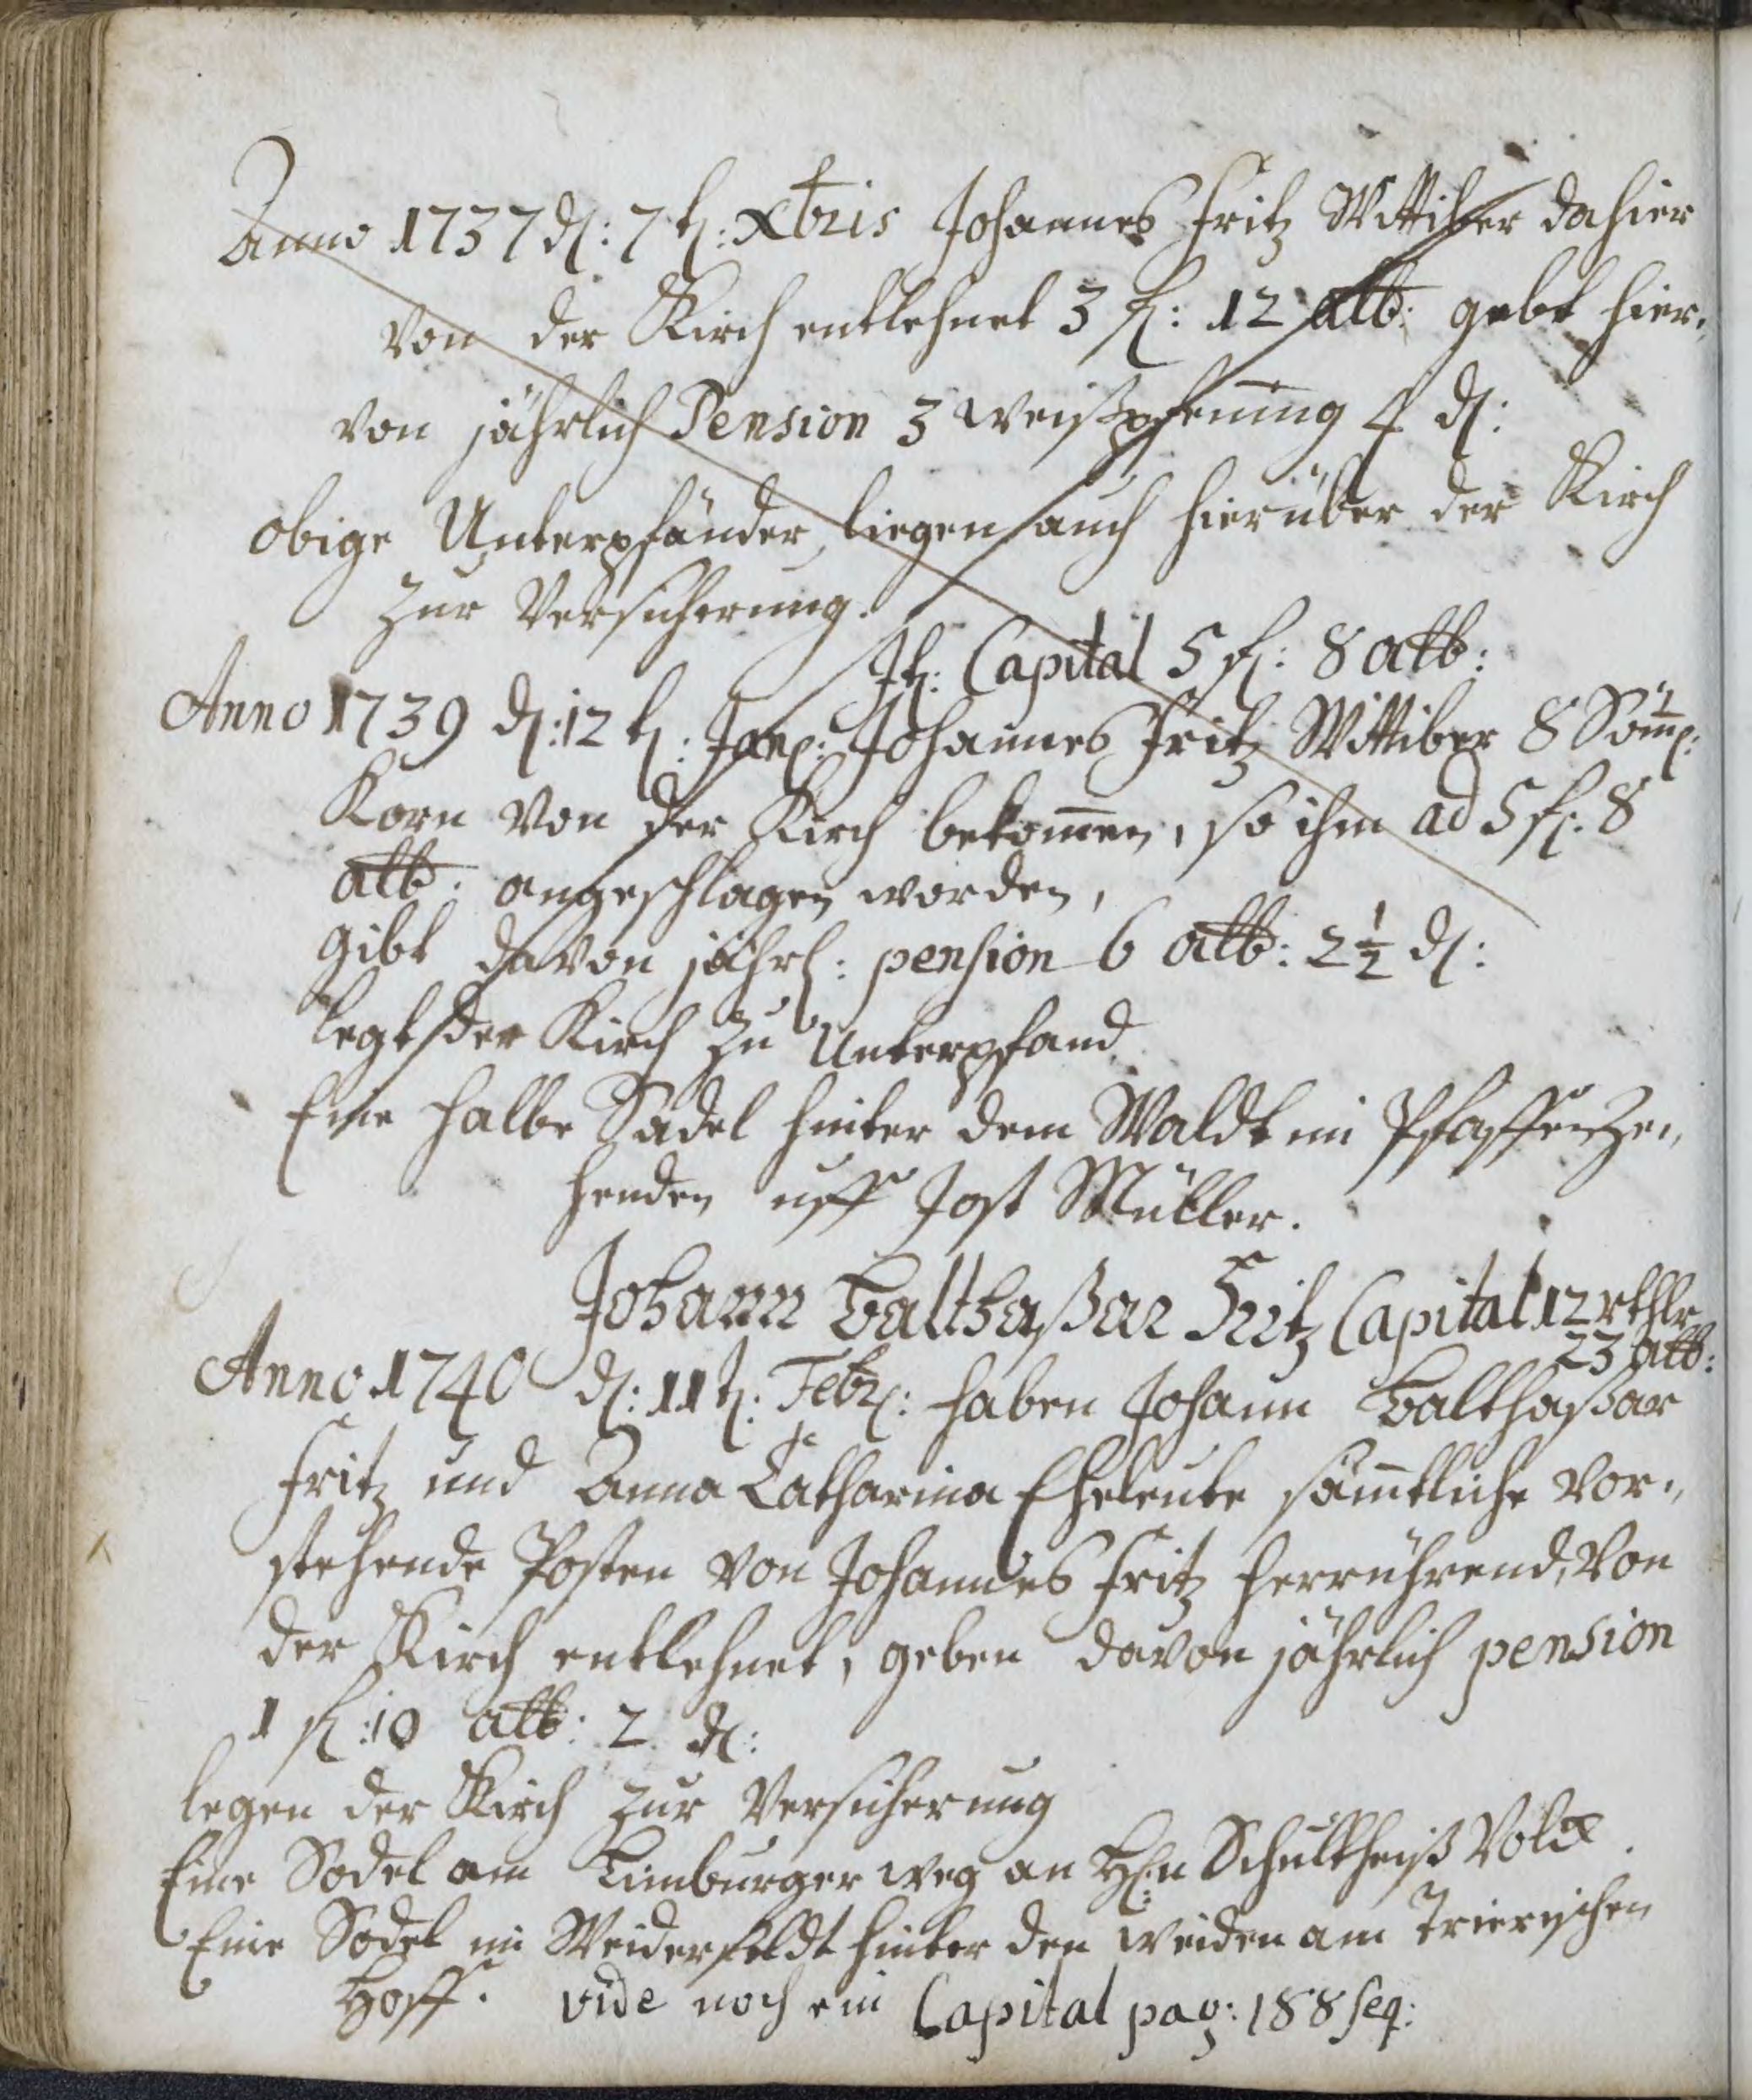 Anno 1737 d: 7t: Xbris Johannes Fritz Wittiber dahier
von der Kirch entlehnet 3 fl: 12 alb: gebt hier,
von jährlich Pension 3 weißpfening 4 d:
obige Unterpfänder liegen auch hierüber der Kirch
zur Versicherung.
It: Capital 5 fl: 8 alb:
Anno 1739 d: 12t: Jan: Johannes Fritz Wittiber 8 Söm:
Korn von der Kirch bekomen, so ihm ad 5 fl: 8
alb: angeschlagen worden,
gibt davon jährl: pension 6 alb: 2 1/2 d:
legt der Kirch zu Unterpfand
Eine halbe Sadel hinter dem Waldt im Pfaffenze,,
henden uff Jost Müller.
Johann Balthaßar Fritz Capital 12 rthlr
23 alb:
Anno 1740 d: 11t: Febr: haben Johann Balthaßar
Fritz und Anna Catharina Eheleute sämtliche vor,,
stehende Posten von Johannes Fritz herrührend, von
der Kirch entlehnet, geben davon jährlich pension
1 fl: 10 alb: 2 d:
legen der Kirch zur Versicherung
Eine Sodel am Limburger weg an H:n Schultheiß
Eine Sodel im Weiderfeldt hinter den weiden am Trierischen
Hoff. vide noch ein Capital pag: 188 seq: